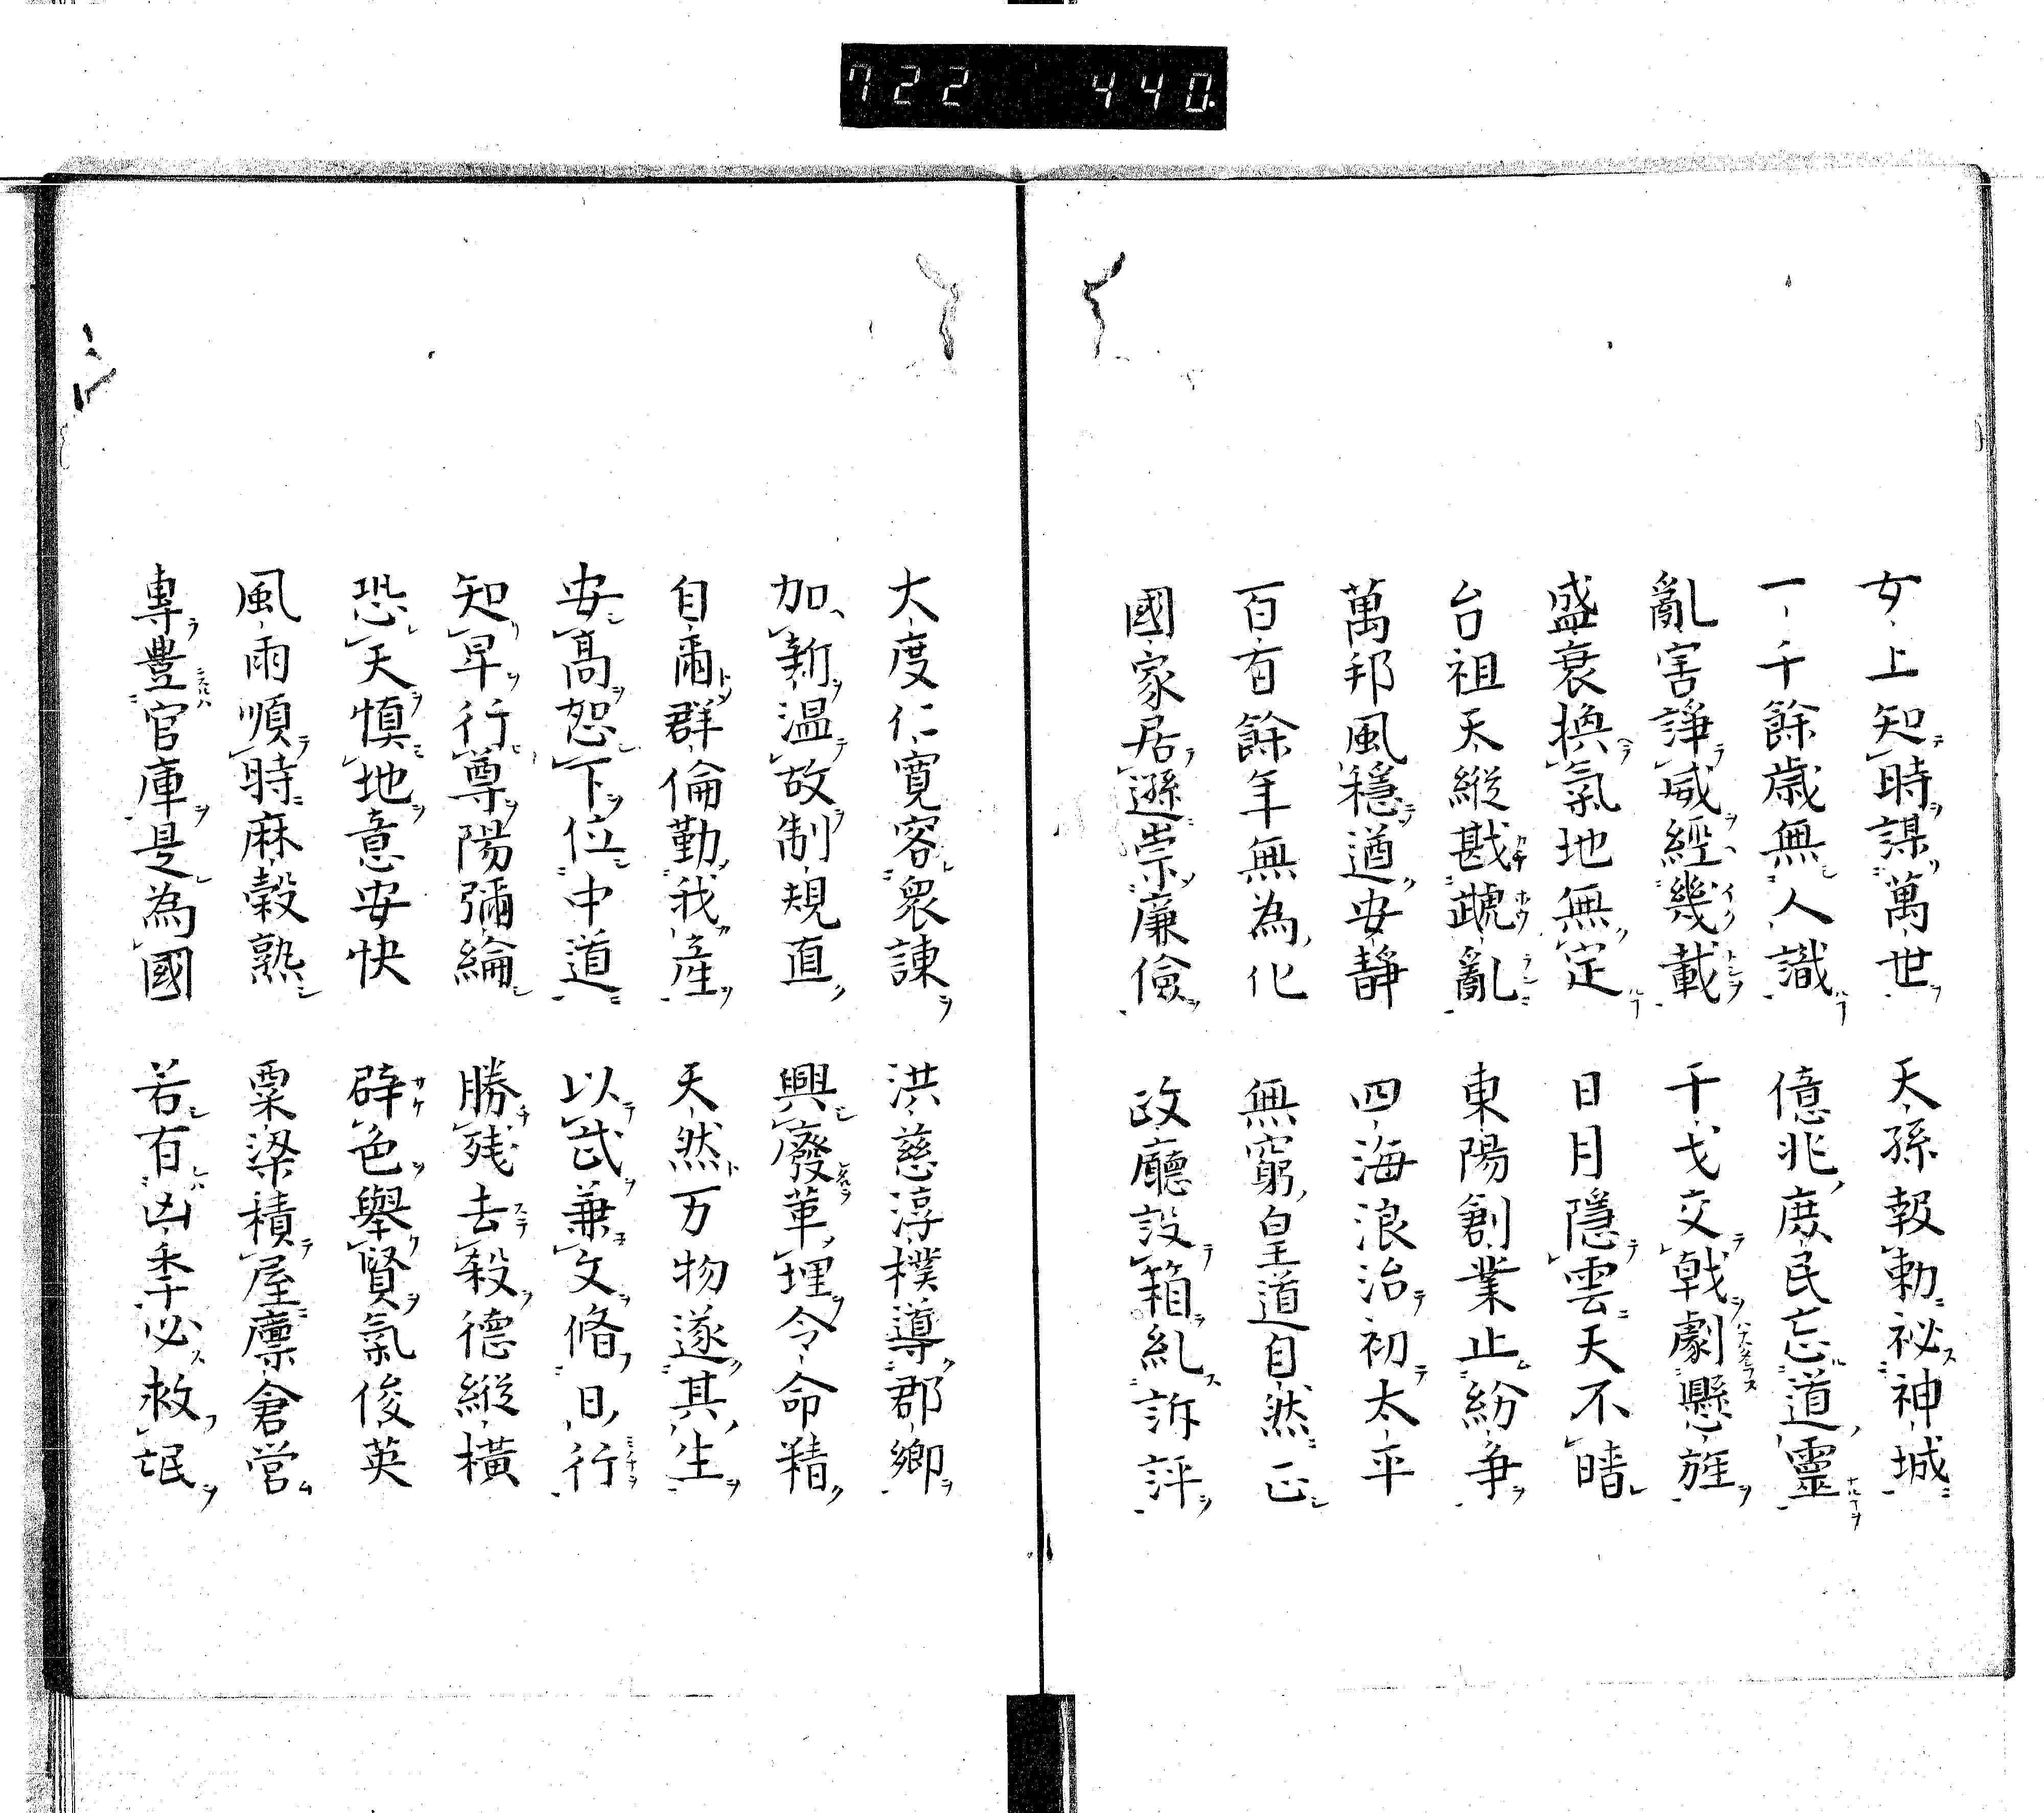 722 440.
女上知時謀萬世 天孫報勅祕神城
一千餘歳無人識 億兆庶民忘道靈
亂害諍威經幾載 干戈交戟劇懸旌
盛衰換氣地無定 日月隱雲天不晴
台祖天縱戡亂 東陽創業止紛爭
萬邦風穩道安靜 四海浪治初太平
百有餘年無為化 無窮皇道自然正
國家居遜崇廉儉 政廳設箱糺訴評
大度仁寛容衆諫 洪慈淳樸導郡鄉
加新温故制規直 興廢革埋令命精
自爾群倫勤我産 天然万物遂其生
安高恕下位中道 以武兼文脩日行
知卑行尊陽彌綸 勝残去殺德縱橫
恐天慎地意安快 辟色舉賢氣俊英
風雨順時麻穀熟 粟梁積屋廪倉営
專豊官庫是為國 若有凶季必救氓